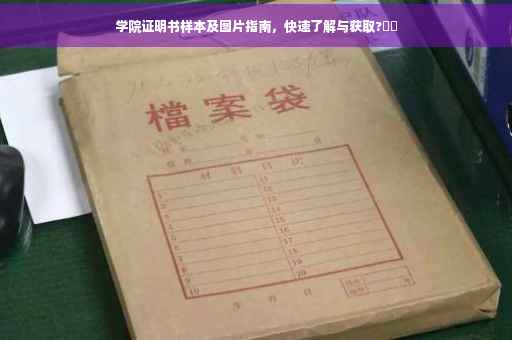 学院证明书样本及图片指南，快速了解与获取?
檔案袋
材料目次
1 11
2 12
3 13
4 14
5 15
6 16
7 17
8 18
9 19
10 20
年 月 日